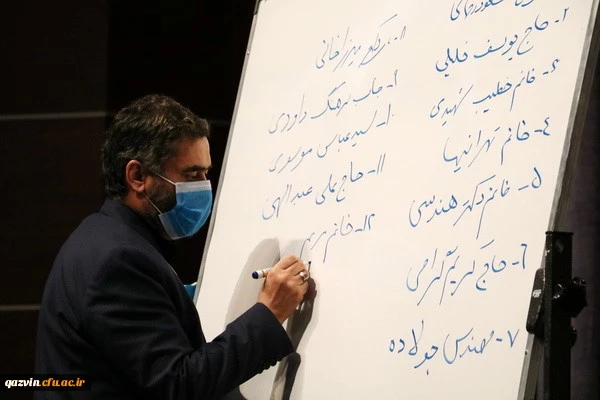 ۲- حاج یوسف خلیلی
۳- خانم خطیب شهیدی
۴- خانم تهرانیها
۵- خانم دکتر هندسی
۶- حاج کریم اکرامی
۷- مهندس جولاده
۸- میرزاخانی
۹- جناب سرهنگ داودی
۱۰- سید عباس موسوی
۱۱- حاج علی عبدالهی
۱۲- خانم مریم
qazvin.cfu.ac.ir